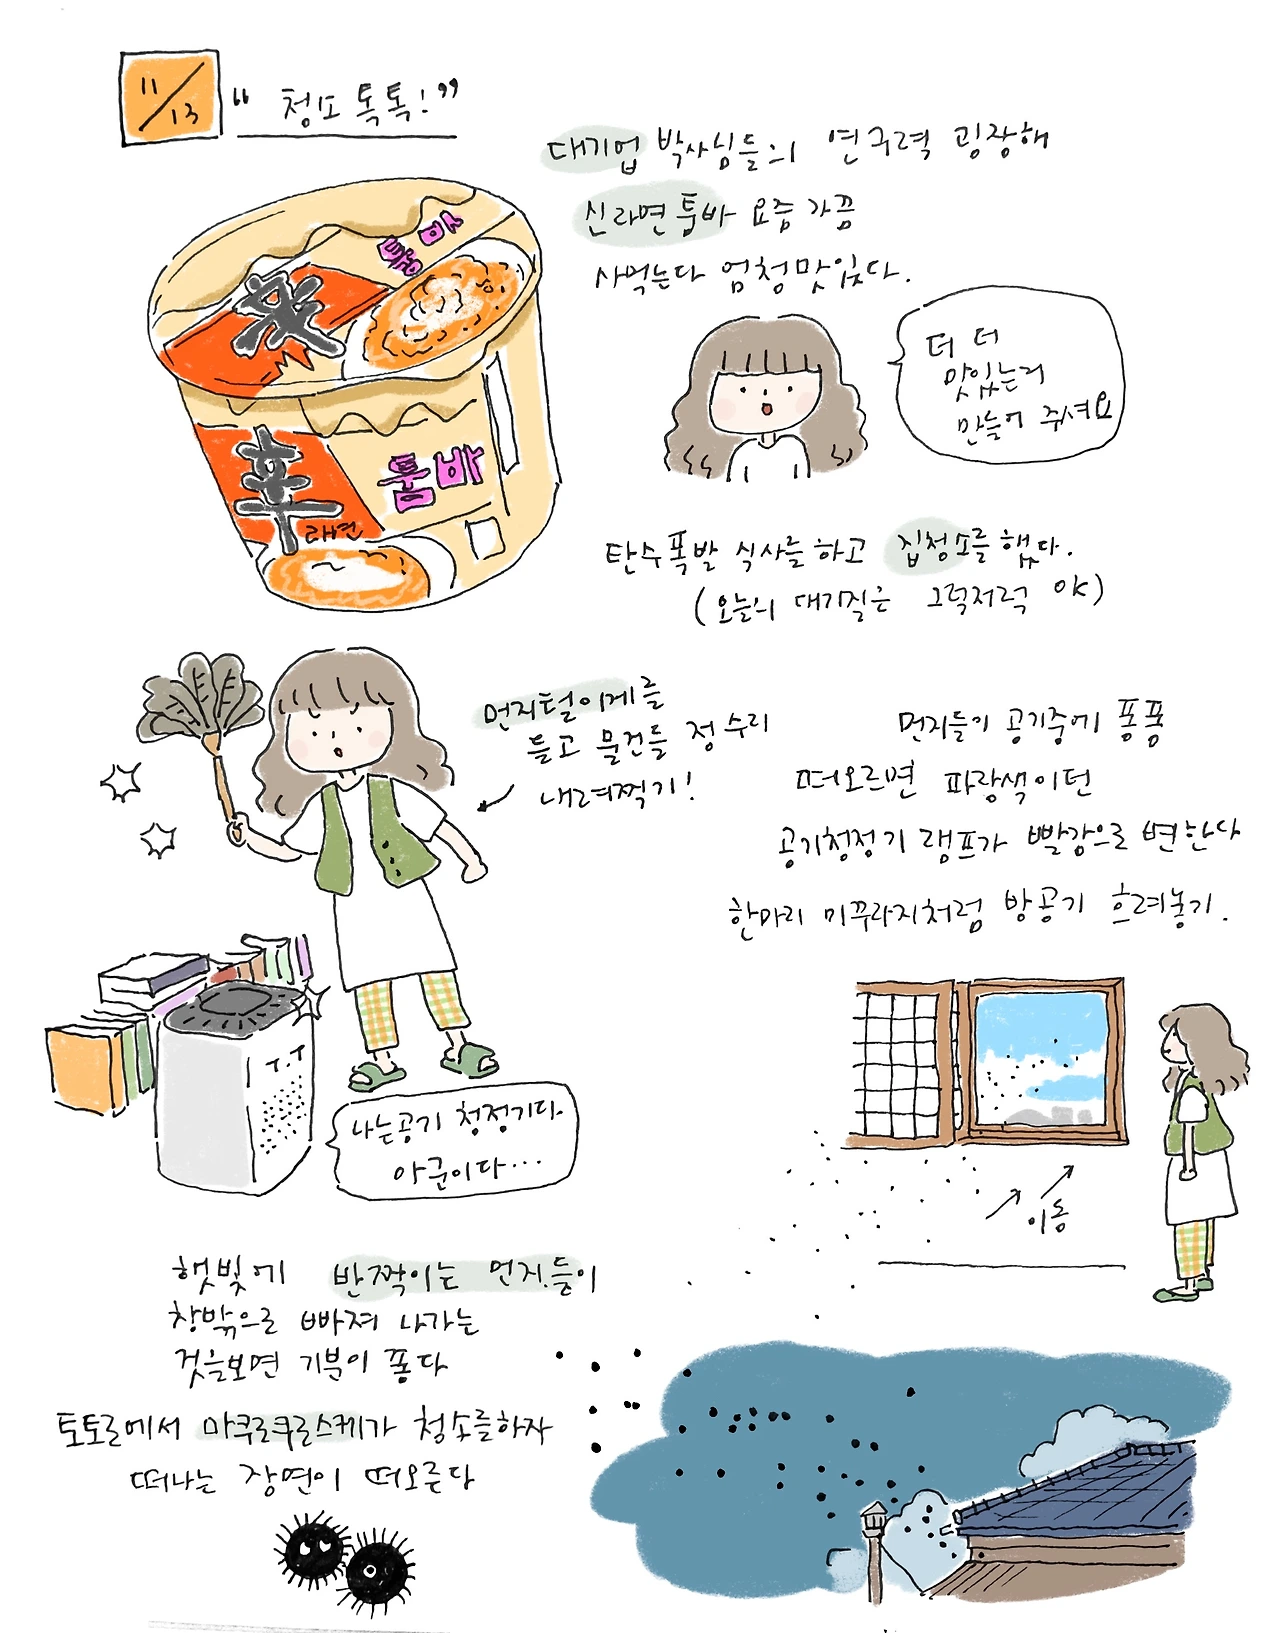 11/13
"청소 톡톡!"
대기업 박사님들의 연구력 굉장해
신라면 툼바 요즘 가끔
사먹는다 엄청 맛있다.
辛
툼바
辛
라면
툼바
더 더
맛있는거
만들어 주셔요
탄수폭발 식사를 하고 집청소를 했다.
(오늘의 대기질은 그럭저럭 OK)
먼지털이게를
들고 물건들 정수리
내려찍기!
먼지들이 공기중에 퐁퐁
떠오르면 파랑색이던
공기청정기 램프가 빨강으로 변한다
한마리 미꾸라지처럼 방공기 흐려놓기.
나는 공기 청정기다.
아군이다...
이동
햇빛에 반짝이는 먼지들이
창밖으로 빠져 나가는
것을보면 기분이 퐁다
토토로에서 마쿠로쿠로스케가 청소를하자
떠나는 장면이 떠오른다